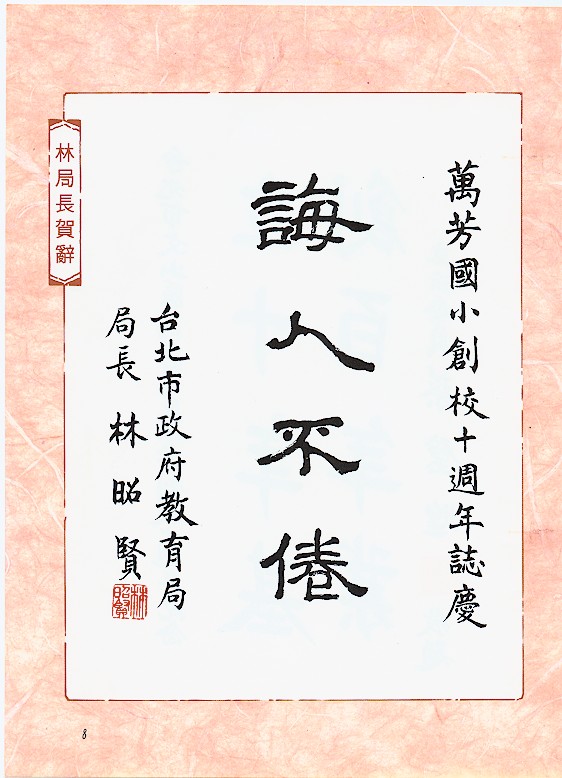 林局長賀辭
萬芳國小創校十週年誌慶
誨人不倦
台北市政府教育局
局長 林昭賢
林昭賢
8